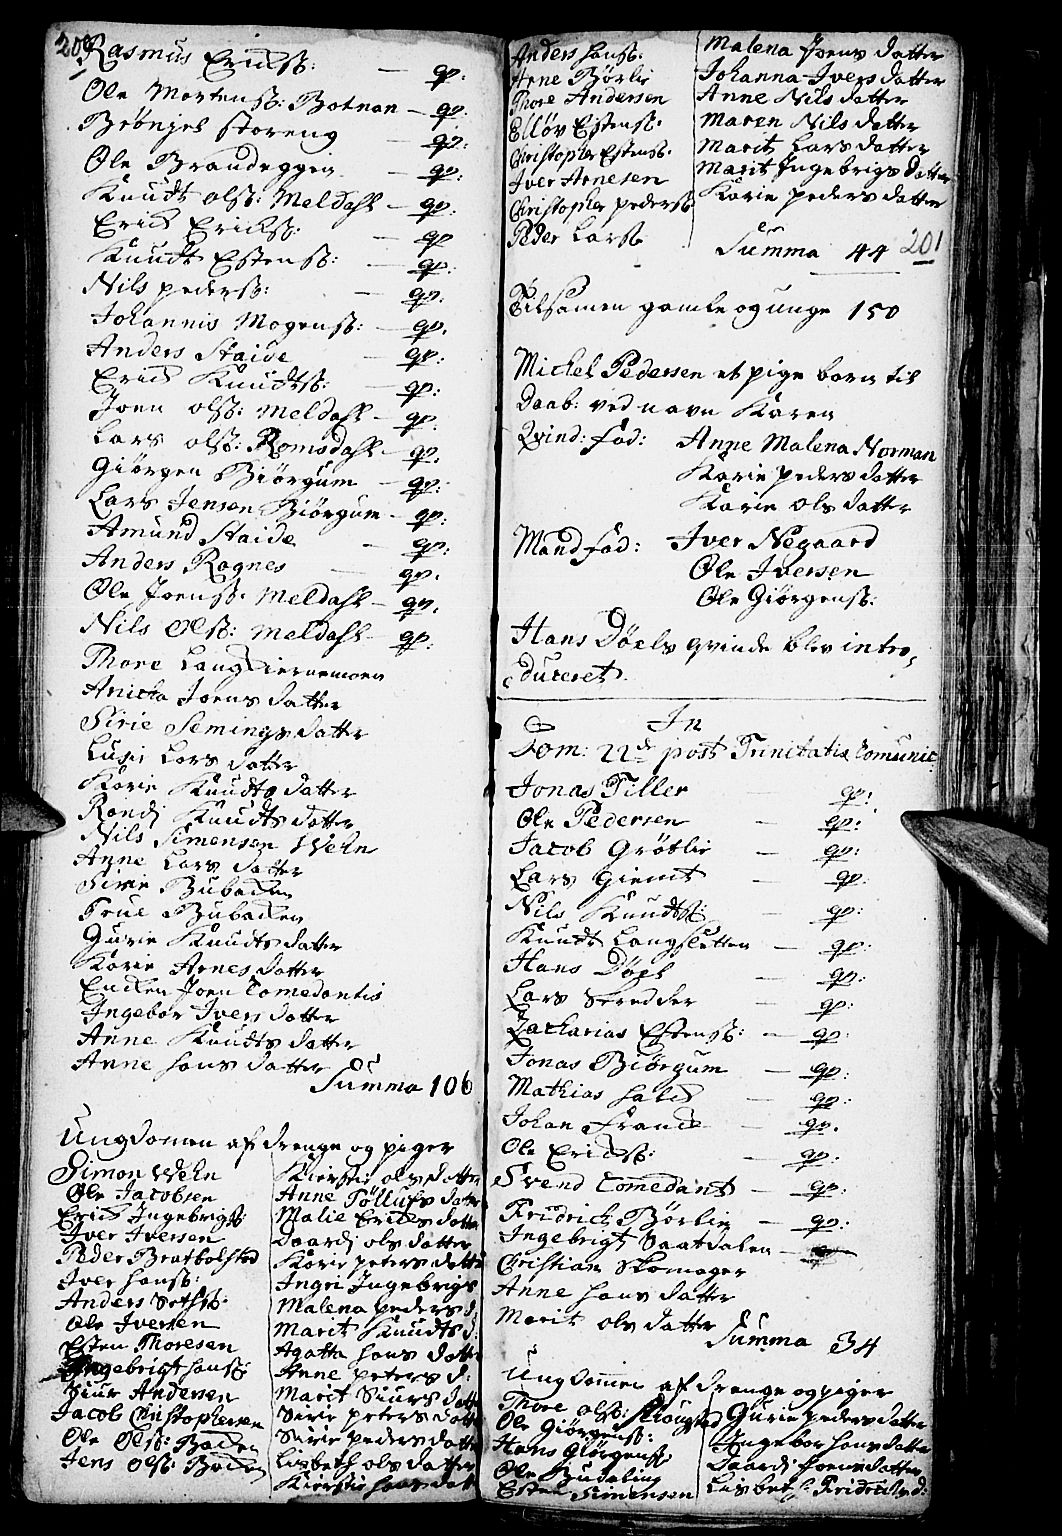 200
Rasmus Ericks: — qv:
Ole Mortens: Botnan — qv:
Brönjel Storeng — qv:
Ole Brandeggen — qv:
Knudt olss: Meldahl — qv:
Erick Ericks: — qv
Knudt Estens: — qv:
Nils peders: — qv:
Johannis Mogens: — qv.
Anders Staide — qv:
Erick Knudts: — qv:
Joen olss: Meldahl — qv:
Lars olss: Romsdahl — qv:
Giörgen Biörgum — qv:
Lars Jensen Biörgum — qv:
Amund Staide — qv:
Anders Rognes — qv:
Ole Joens: Meldahl — qv.
Nils Olss: Meldahl — qv:
Thore Langkiernemoen
Anicka Joens datter
Sirie Semings datter
Lusie Lars datter
Karie Knudts datter
Randj Knudts datter
Nils Simensen Wehn
Anne Lars datter
Sirie Bubacken
True Bubacken
Gurie Knudts datter
Karie Arnes datter
Encken Joen Comedantis
Ingebor Ivers datter
Anne Knudts datter
Anne hans datter
Summa 106
Ungdomen af drenge og piger
Simon Wehn
Ole Jacobsen
Erick Ingebrigts
Iver Iversen
Peder Bratbolsted
Iver hans:
Anders Seths:
Ole Iversen
Esten Thoresen
Ingebrigt hans:
Siur Andersen
Jacob Christophersen
Ole Olss: Backen
Jens olss: Backen
Kiersti ols datter
Anne Tölluss datter
Malie Ericks datter
Daardj ols datter
Karie peters datter
Ingri Ingebrigs
Malena peders d:
Marit Knudts d:
Agatta hans datter
Anne peters d:
Marit Siurs datter
Sirie peters datter
Sirie peders datter
Lisbeth ols datter
Kierstie hans datt
Anders hans:
Arne Börlie
Thore Andersen
Ellöv Estens:
Christopher Estens:
Iver Arnesen
Christopher peders:
Peder Lars:
Malena Joens datter
Johanna Ivers datter
Anne Nils datter
Maren Nils datter
Marit Lars datter
Marit Ingebrigs datter
Karie peders datter
Summa 44
201
Tilsamen gamle og unge 150
Michel Pedersen et pige barn til
Daab: ved navn Karen
Qvind: fad: Anne Malena Norman
Karie peders datter
Karie ols datter
Mandfad: Iver Negaard
Ole Iversen
Ole Giörgens:
Hans Döels qvinde blev intro-
duceret.
In
Dom: 22de post Trinitatis Comunic:
Jonas Tiller — qv:
Ole Pedersen — qv:
Jacob Grötlie — qv:
Lars Giemt — qv:
Nils Knudts: — qv:
Knudt Langsletten — qv:
Hans Döel — qv:
Lars Seredder — qv:
Zacharias Estens: — qv:
Jonas Biörgum — qv:
Mathias hald — qv:
Johan Franck — qv.
Ole Ericks: — qv:
Svend Comedant — qv:
Fridrich Börlie — qv:
Ingebrigt Saatdalen —
Christian Skomager
Anne hans datter
Marit ols datter
Summa 34
Ungdommen af drenge og piger
Thore olss:
Ole Giörgens:
Hans Giörgens:
Ole Budaling
Esten Simensen
Gurie peders datter
Ingebor hans datter
Daardj Joens datter
Lisbet Fridrichs d: